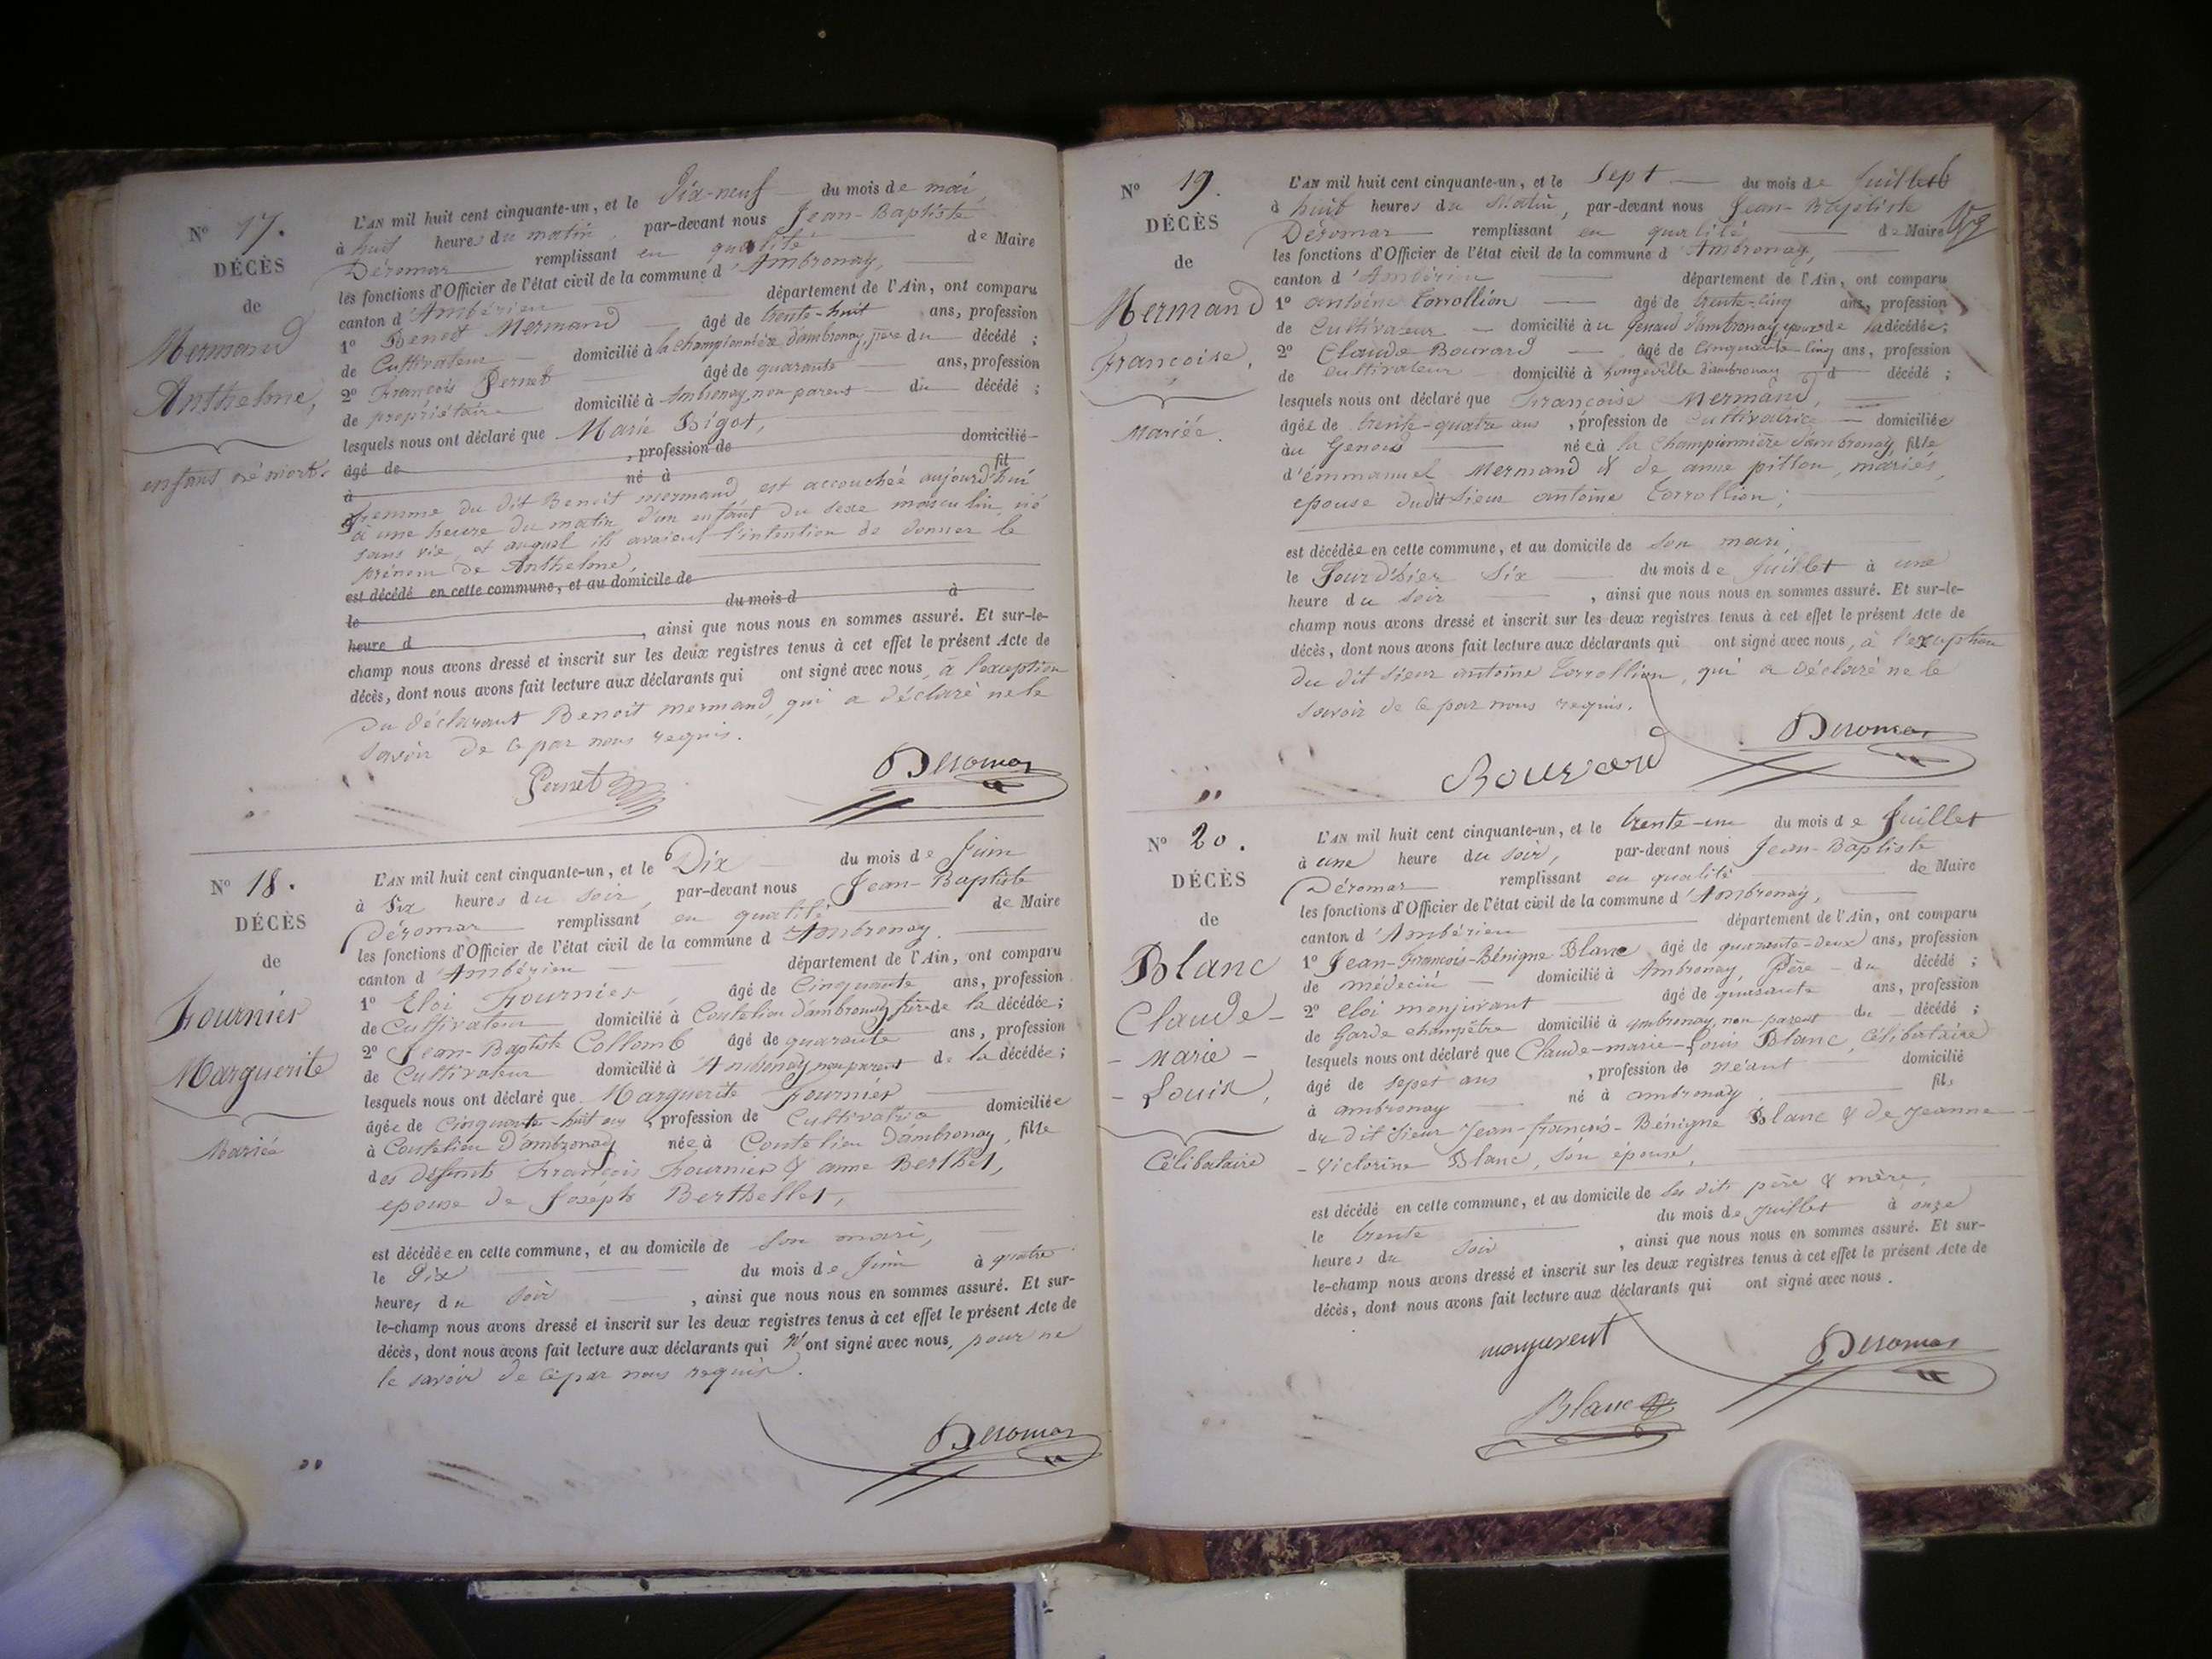 N° 17.
DÉCÈS
de
Mermand
Anthelme,
enfant né mort.
L'AN mil huit cent cinquante-un, et le Dix-neuf du mois de mai
à huit heures du matin, par-devant nous Jean-Baptiste
Déromar remplissant en qualité de Maire
les fonctions d'Officier de l'état civil de la commune d'Ambronay,
canton d'Ambérieu département de l'Ain, ont comparu
1° Benoit Mermand âgé de trente-huit ans, profession
de Cultivateur domicilié à la championnière d'ambronay, père du décédé ;
2° François Pernet âgé de quarante ans, profession
de propriétaire domicilié à Ambronay, non parent du décédé ;
lesquels nous ont déclaré que Marie Bigot,
âgé de , profession de domicilié
à né à fil
femme du dit Benoit mermand, est accouchée aujourd'hui
à une heure du matin, d'un enfant du sexe masculin, né
sans vie, et auquel ils avaient l'intention de donner le
prénom de Anthelme,
est décédé en cette commune, et au domicile de
le du mois d à
heure d , ainsi que nous nous en sommes assuré. Et sur-le-
champ nous avons dressé et inscrit sur les deux registres tenus à cet effet le présent Acte de
décès, dont nous avons fait lecture aux déclarants qui ont signé avec nous, à l'exception
du déclarant Benoit mermand, qui a déclaré ne le
savoir de ce par nous requis.
Pernet Deromar
N° 18.
DÉCÈS
de
Fournier
Marguerite
Mariée
L'AN mil huit cent cinquante-un, et le Dix du mois de Juin
à Six heures du soir, par-devant nous Jean-Baptiste
Déromar remplissant en qualité de Maire
les fonctions d'Officier de l'état civil de la commune d'Ambronay.
canton d'Ambérieu département de l'Ain, ont comparu
1° Eloi Fournier, âgé de Cinquante ans, profession
de Cultivateur domicilié à Coutelieu d'ambronay, frère de la décédée ;
2° Jean-Baptiste Collomb âgé de quarante ans, profession
de Cultivateur domicilié à Ambronay, non parent de la décédée ;
lesquels nous ont déclaré que Marguerite Fournier
âgée de Cinquante-huit ans, profession de Cultivatrice domiciliée
à Coutelieu d'ambronay née à Coutelieu d'ambronay, fille
des défunts François Fournier & anne Berthet,
epouse de Joseph Berthellet,
est décédée en cette commune, et au domicile de son mari,
le Dix du mois de Juin à quatre
heures du soir , ainsi que nous nous en sommes assuré. Et sur-
le-champ nous avons dressé et inscrit sur les deux registres tenus à cet effet le présent Acte de
décès, dont nous avons fait lecture aux déclarants qui n'ont signé avec nous, pour ne
le savoir de ce par nous requis.
Deromar
N° 19.
DÉCÈS
de
Mermand
Francoise,
Mariée.
L'AN mil huit cent cinquante-un, et le Sept du mois de Juillet
à huit heures du Matin, par-devant nous Jean-Baptiste
Déromar remplissant en qualité de Maire
les fonctions d'Officier de l'état civil de la commune d'Ambronay,
canton d'Ambérieu département de l'Ain, ont comparu
1° antoine Corrollion âgé de trente-cinq ans, profession
de Cultivateur domicilié au d'ambronay, époux de la décédée ;
2° Claude Bouvard âgé de Cinquante cinq ans, profession
de cultivateur domicilié à Longeville d'ambronay d décédé ;
lesquels nous ont déclaré que Francoise Mermand,
âgée de trente-quatre ans, profession de Cultivatrice domiciliée
au Genoud née à la Championnière d'ambronay, fille
d'émmanuel Mermand & de anne pittou, mariés,
epouse dudit sieur antoine Corrollion ;
est décédée en cette commune, et au domicile de son mari,
le Jour d'hier Six du mois de Juillet à une
heure du soir , ainsi que nous nous en sommes assuré. Et sur-le-
champ nous avons dressé et inscrit sur les deux registres tenus à cet effet le présent Acte de
décès, dont nous avons fait lecture aux déclarants qui ont signé avec nous, à l'exception
du dit sieur antoine Corrollion, qui a déclaré ne le
savoir de ce par nous requis.
Bouvard Deromar
N° 20.
DÉCÈS
de
Blanc
Claude-
- Marie -
- Louis,
Célibataire
L'AN mil huit cent cinquante-un, et le trente-un du mois de Juillet
à une heure du soir, par-devant nous Jean-Baptiste
Déromar remplissant en qualité de Maire
les fonctions d'Officier de l'état civil de la commune d'Ambronay,
canton d'Ambérieu département de l'Ain, ont comparu
1° Jean-François-Bénigne Blanc âgé de quarante-deux ans, profession
de médecin domicilié à Ambronay, Père du décédé ;
2° eloi monjuvant âgé de quarante ans, profession
de Garde champêtre domicilié à ambronay, non parent du décédé ;
lesquels nous ont déclaré que Claude-marie-Louis Blanc, Célibataire
âgé de sept ans , profession de Néant domicilié
à ambronay né à ambronay, fils
du dit sieur Jean-françois-Bénigne Blanc & de Jeanne-
-victorine Blanc, son épouse,
est décédé en cette commune, et au domicile de ses dits père & mère,
le trente du mois de Juillet à onze
heures du soir , ainsi que nous nous en sommes assuré. Et sur-
le-champ nous avons dressé et inscrit sur les deux registres tenus à cet effet le présent Acte de
décès, dont nous avons fait lecture aux déclarants qui ont signé avec nous.
monjuvent Deromar
Blanc